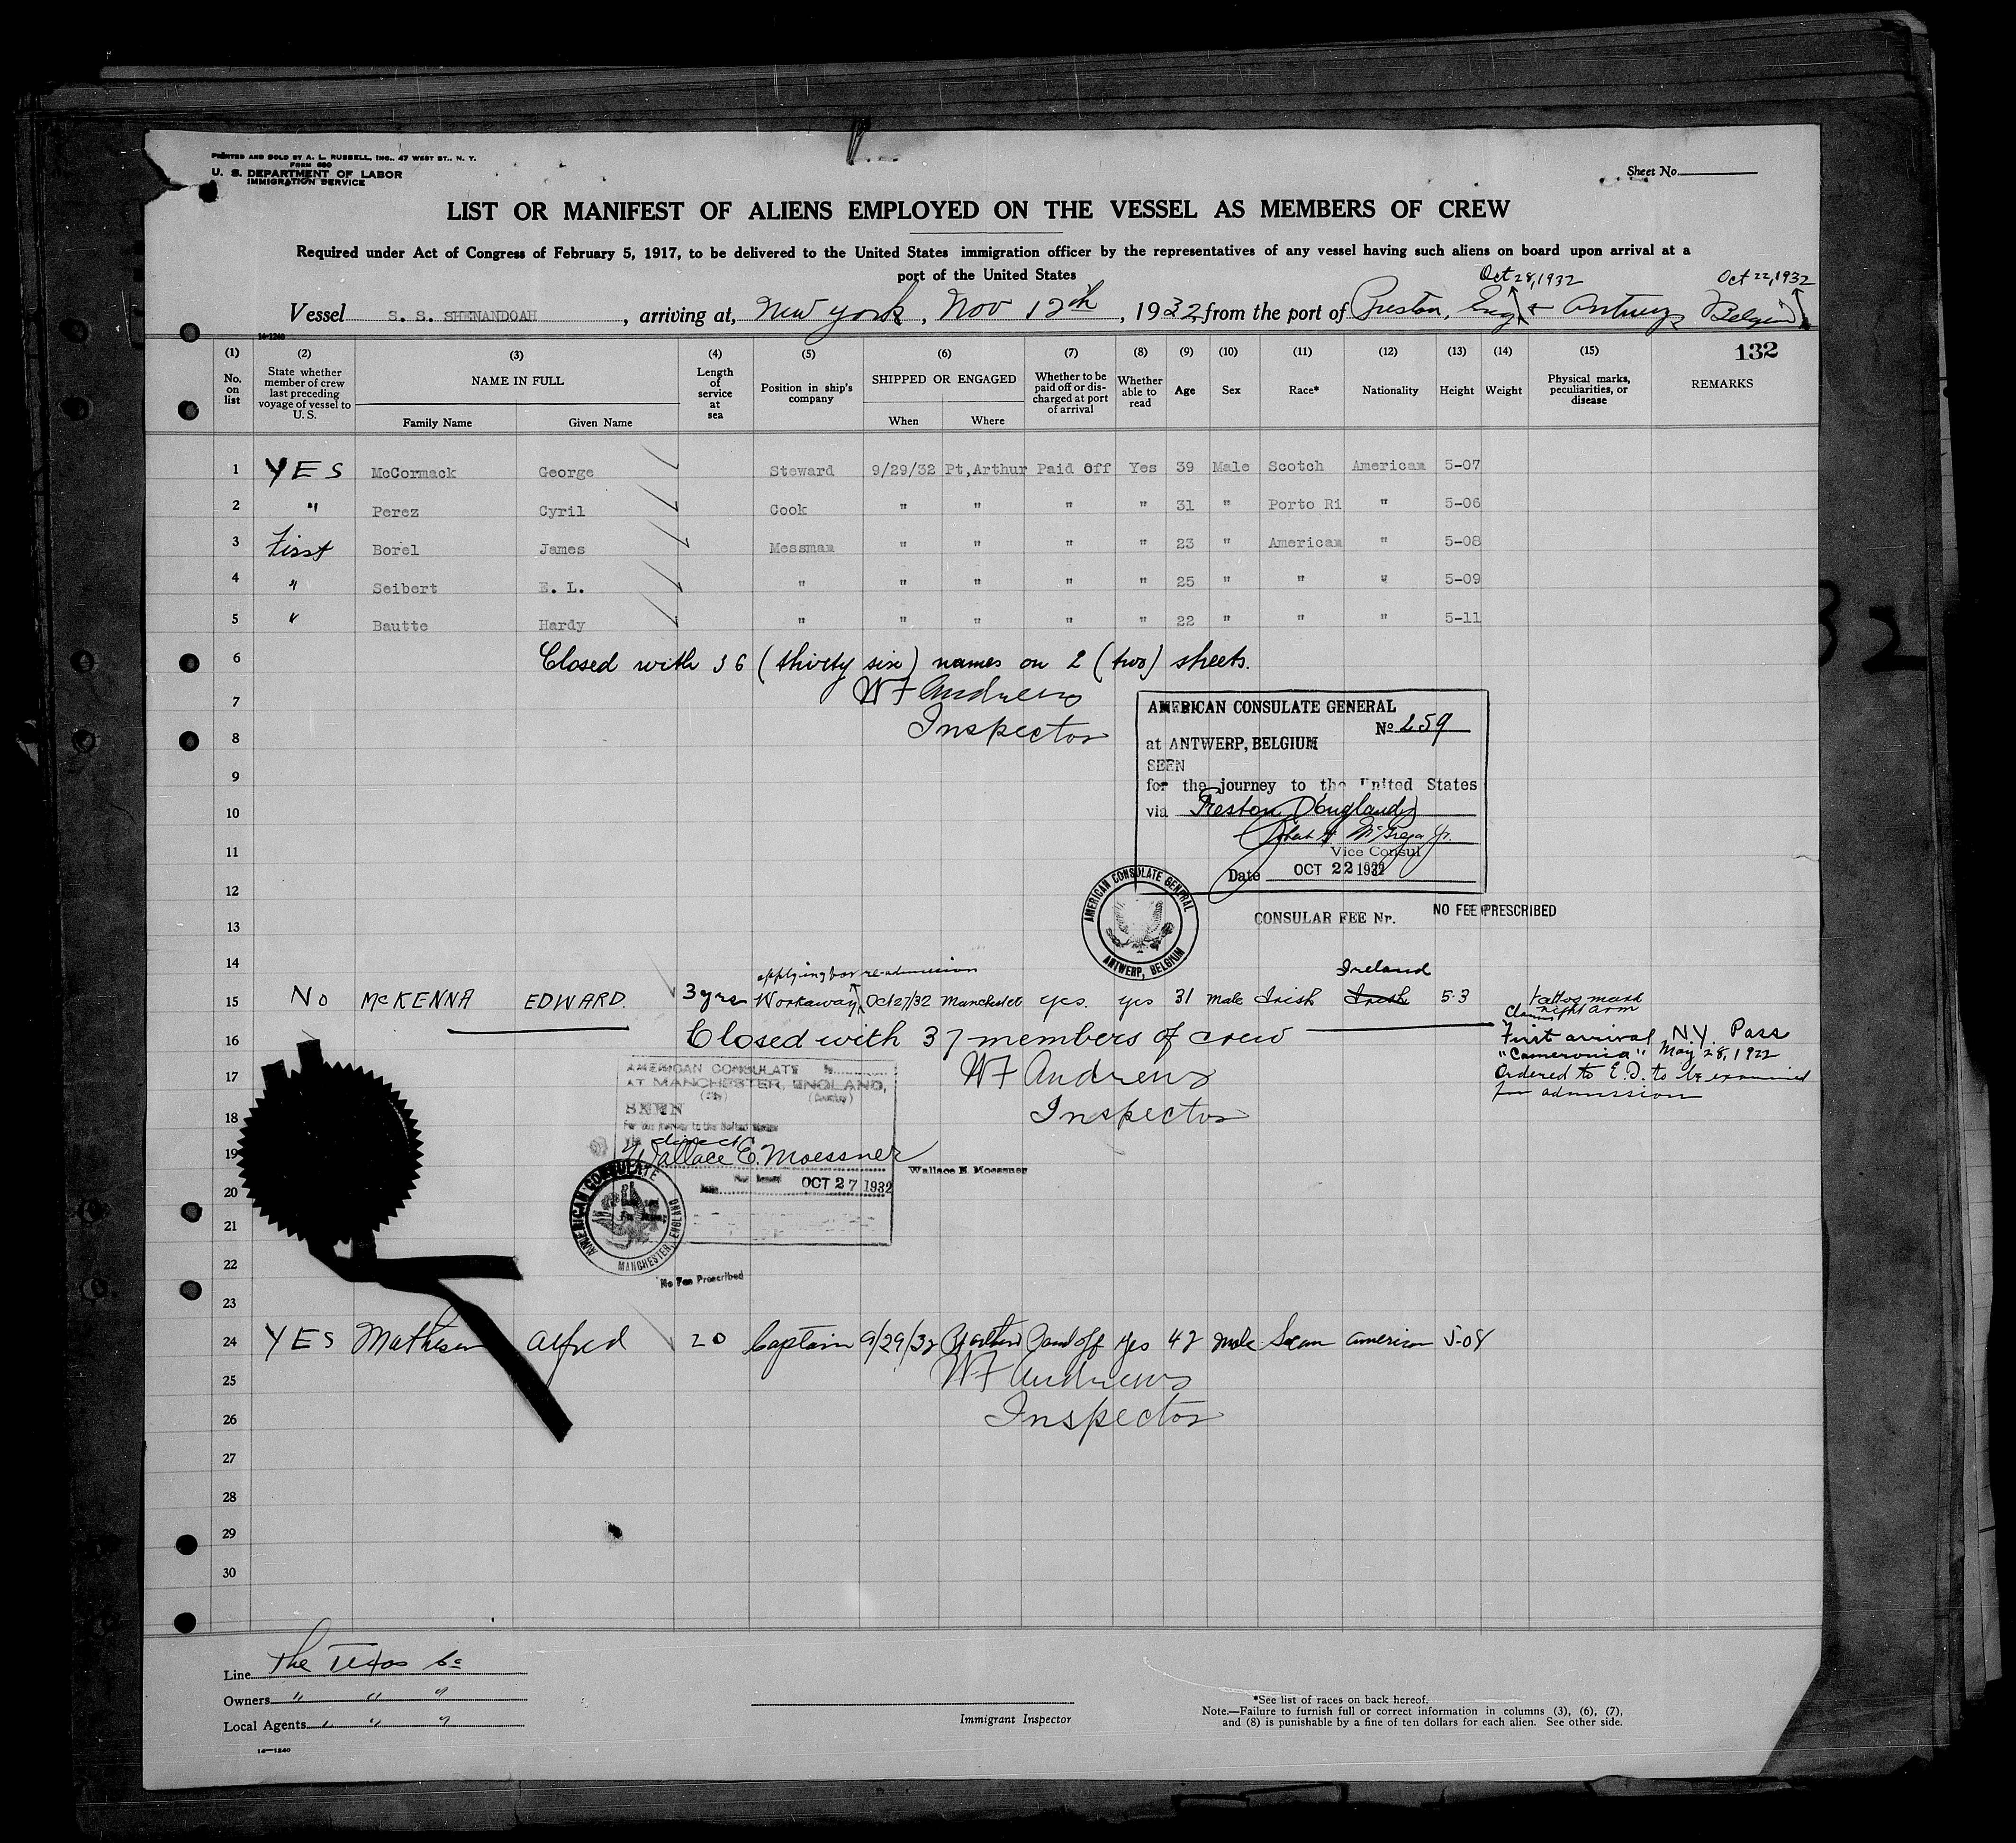 PRINTED AND SOLD BY A. L. RUSSELL, INC., 47 WEST ST., N. Y.
FORM 680
U. S. DEPARTMENT OF LABOR
IMMIGRATION SERVICE
Sheet No.
LIST OR MANIFEST OF ALIENS EMPLOYED ON THE VESSEL AS MEMBERS OF CREW
Required under Act of Congress of February 5, 1917, to be delivered to the United States immigration officer by the representatives of any vessel having such aliens on board upon arrival at a
port of the United States
Oct 28, 1932 Oct 22, 1932
Vessel S. S. SHENANDOAH, arriving at, New York, Nov 12th, 1932 from the port of Preston, Eng & Antwerp Belgium
14-1240
(1) (2) (3) (4) (5) (6) (7) (8) (9) (10) (11) (12) (13) (14) (15) 132
No. on list
State whether member of crew last preceding voyage of vessel to U. S.
NAME IN FULL
Family Name Given Name
Length of service at sea
Position in ship's company
SHIPPED OR ENGAGED
When Where
Whether to be paid off or discharged at port of arrival
Whether able to read
Age Sex Race* Nationality Height Weight
Physical marks, peculiarities, or disease
REMARKS
1 YES McCormack George Steward 9/29/32 Pt,Arthur Paid Off Yes 39 Male Scotch American 5-07
2 " Perez Cyril Cook " " " " 31 " Porto Ri " 5-06
3 First Borel James Messman " " " " 23 " American " 5-08
4 " Seibert E. L. " " " " " 25 " " " 5-09
5 " Bautte Hardy " " " " " 22 " " " 5-11
6 Closed with 36 (thirty six) names on 2 (two) sheets.
7 W F Andrews
8 Inspector
AMERICAN CONSULATE GENERAL
No 259
at ANTWERP, BELGIUM
SEEN
for the journey to the United States
via Preston (England)
Vice Consul
Date OCT 22 1932
AMERICAN CONSULATE GENERAL
ANTWERP, BELGIUM
CONSULAR FEE Nr. NO FEE PRESCRIBED
9
10
11
12
13
14 applying for re-admission Ireland
15 No McKENNA EDWARD. 3 yrs Workaway Oct 27/32 Manchester yes. yes 31 male Irish Irish 5-3 tattoo mark
right arm
16 Closed with 37 members of crew
Claims
First arrival N.Y. Pass
"Cameronia" May 28, 1922
Ordered to E.D. to be examined
for admission
17 W F Andrews
18 Inspector
AMERICAN CONSULATE
AT MANCHESTER, ENGLAND,
(City) (Country)
SEEN
For the journey to the United States
via direct
Wallace E. Moessner
Wallace E Moessner
OCT 27 1932
AMERICAN CONSULATE
MANCHESTER, ENGLAND
No Fee Prescribed
19
20
21
22
23
24 YES Mathesen Alfred 20 Captain 9/29/32 Pt Arthur Paid off Yes 42 Male Scan American 5-08
25 W F Andrews
26 Inspector
27
28
29
30
Line The Texas Co
Owners " " "
Local Agents " " "
14-1240
Immigrant Inspector
*See list of races on back hereof.
Note.—Failure to furnish full or correct information in columns (3), (6), (7),
and (8) is punishable by a fine of ten dollars for each alien. See other side.